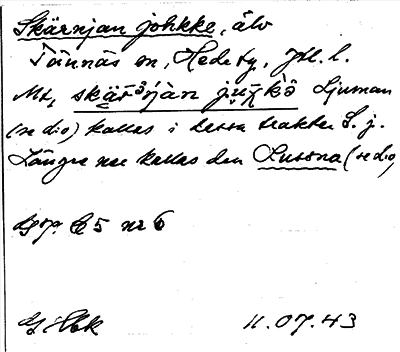 Skärnjan johkke, älv
Tännäs sn, Hede tg, Jtl. l.
Mt, skär³ńjàn jụŋ̄kò Ljusnan
(se d:o) kallas i dessa trakter S. j.
Längre ner kallas den Lussna (se d:o)
nr 6
11.07.43